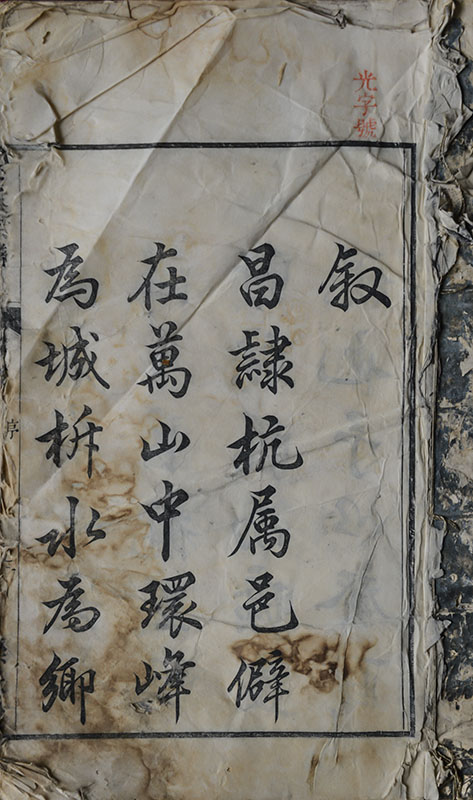 光字號
叙
昌隷杭属邑僻
在萬山中環峰
為城柝水為鄉
序